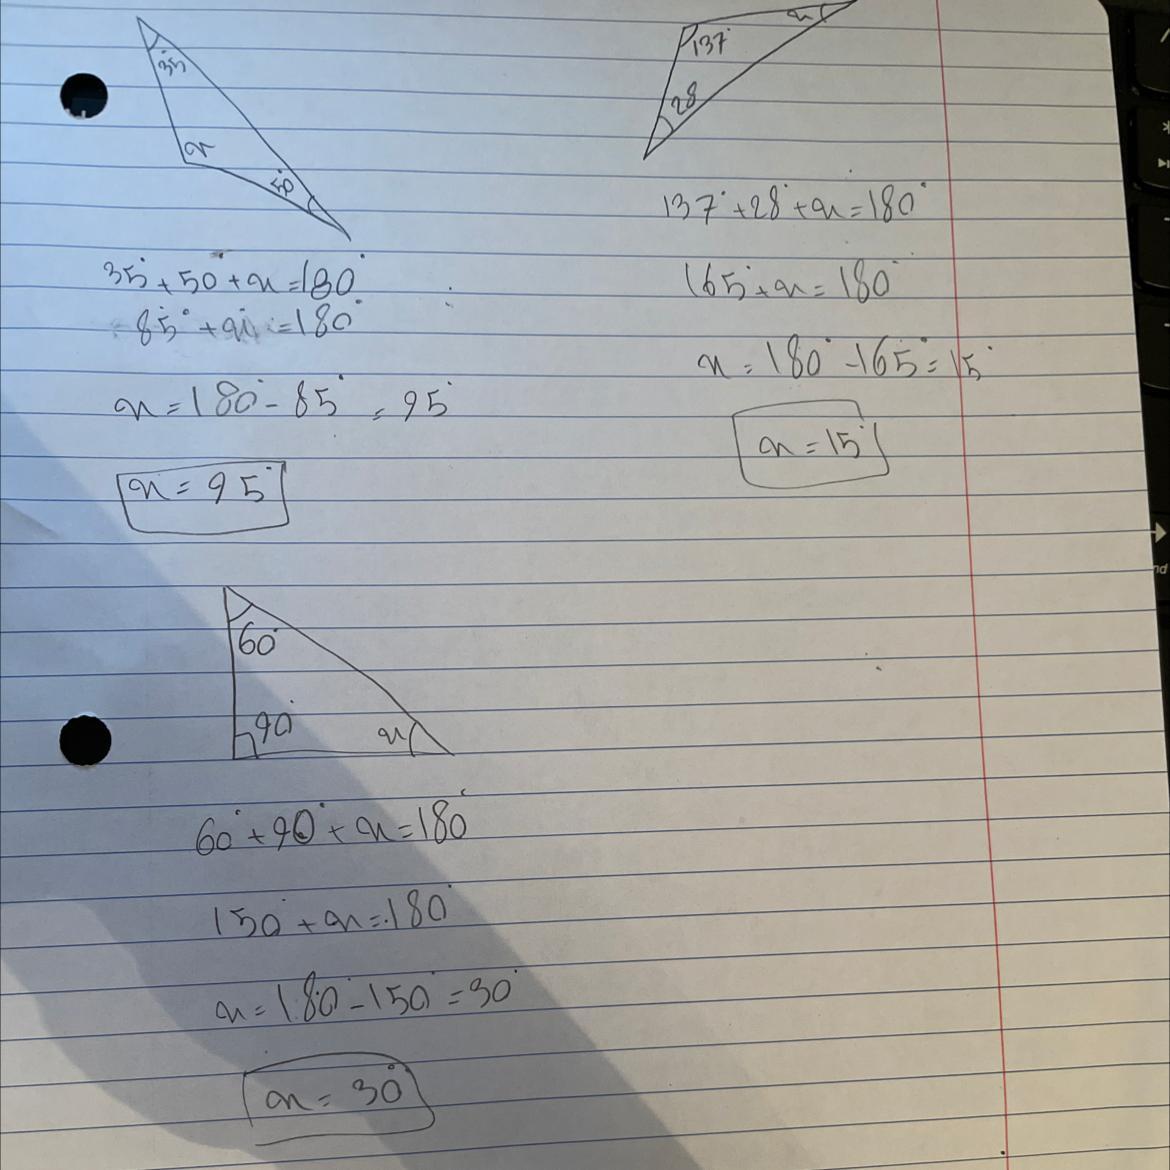 35°
x
50°
35°+50+x=180°
85°+x=180°
x=180°-85°=95°
x=95°
x
137°
28
137°+28°+x=180°
165°+x=180°
x=180°-165°=15°
x=15°
60°
90°
x
60°+90°+x=180°
150°+x=180°
x=180°-150°=30°
x=30°
nd